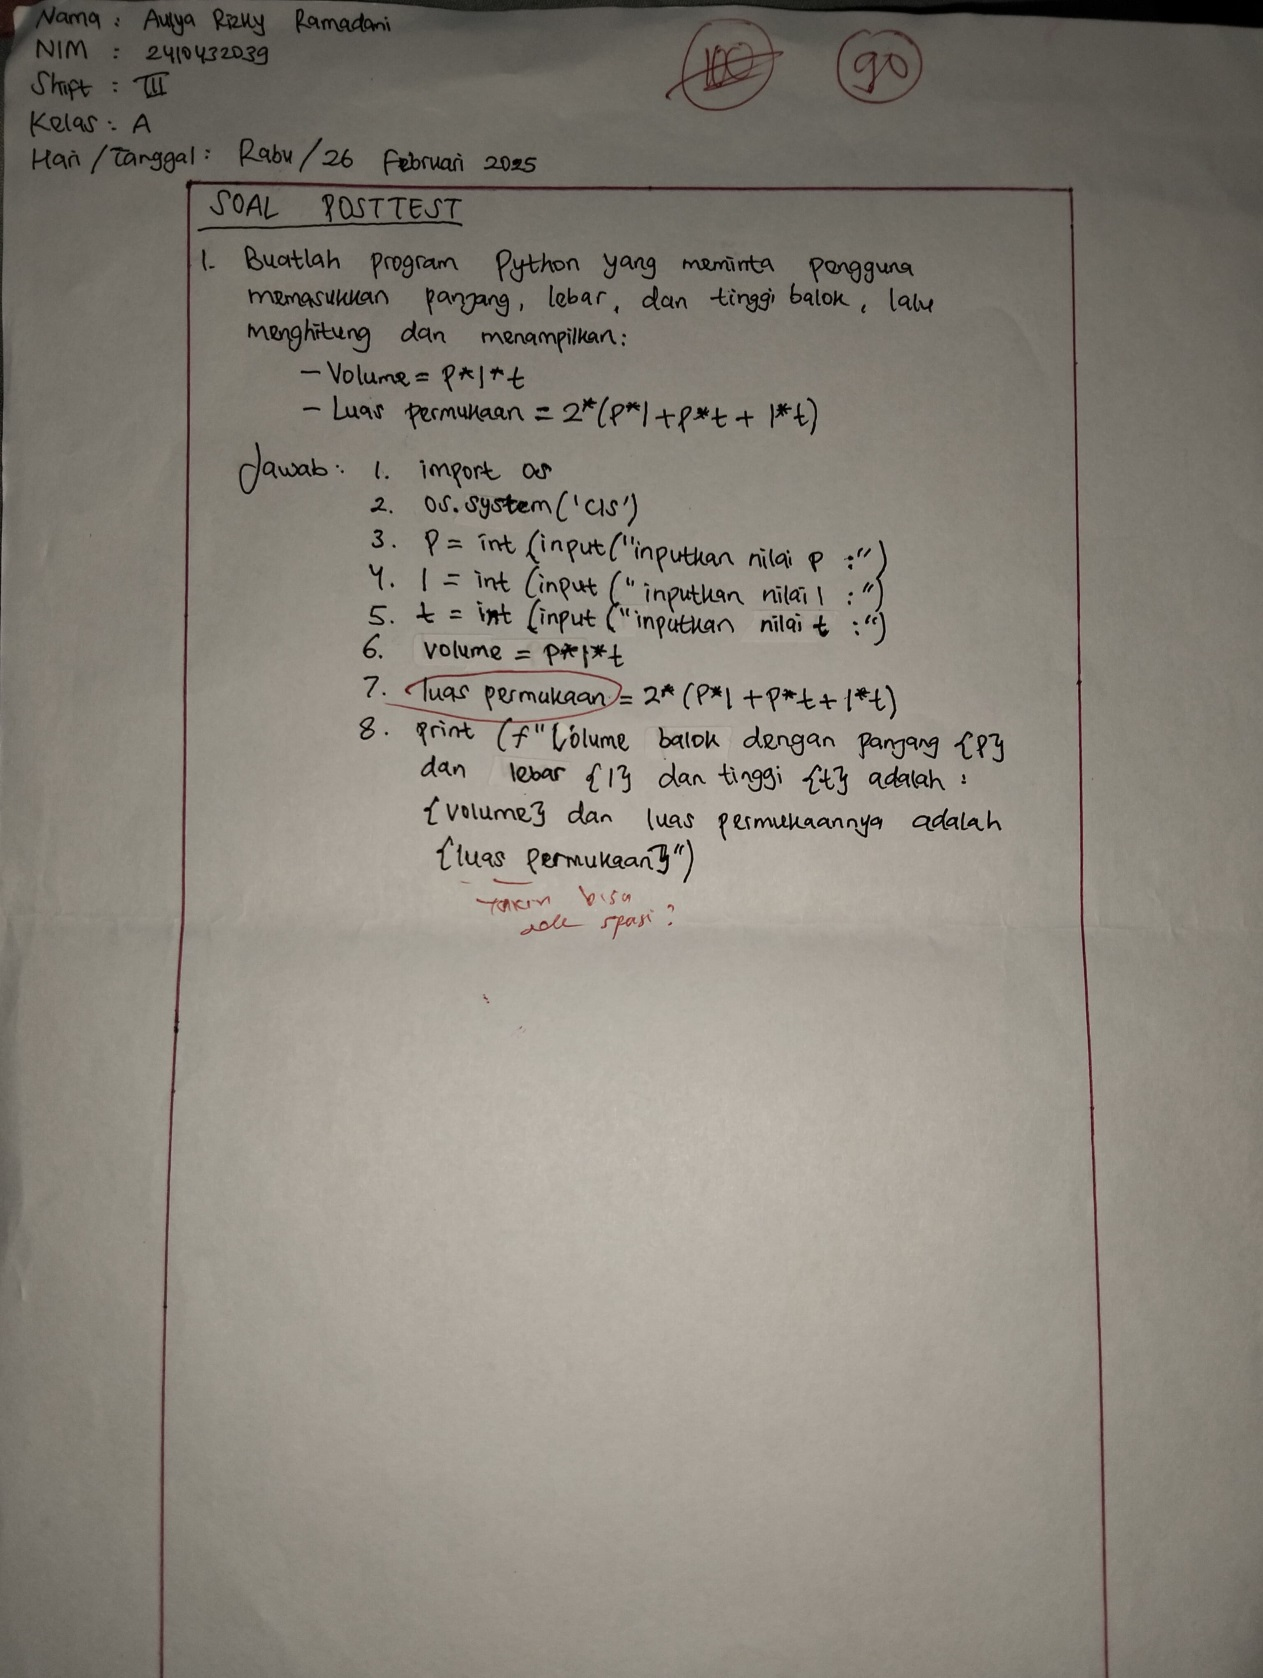 Nama : Aulya Rizky Ramadani
NIM : 2410432039
Shift : III
Kelas : A
Hari / Tanggal : Rabu / 26 Februari 2025
100
90
SOAL POSTTEST
1. Buatlah program Python yang meminta pengguna
memasukkan panjang, lebar, dan tinggi balok, lalu
menghitung dan menampilkan:
- Volume = p*l*t
- Luas permukaan = 2*(p*l + p*t + l*t)
Jawab : 1. import os
2. os.system('cls')
3. p = int (input("inputkan nilai p :")
4. l = int (input ("inputkan nilai l :")
5. t = int (input ("inputkan nilai t :")
6. volume = p*l*t
7. luas permukaan = 2* (p*l + p*t + l*t)
8. print (f"Volume balok dengan panjang {p}
dan lebar {l} dan tinggi {t} adalah :
{volume} dan luas permukaannya adalah
{luas permukaan}")
yakin bisa
ada spasi ?